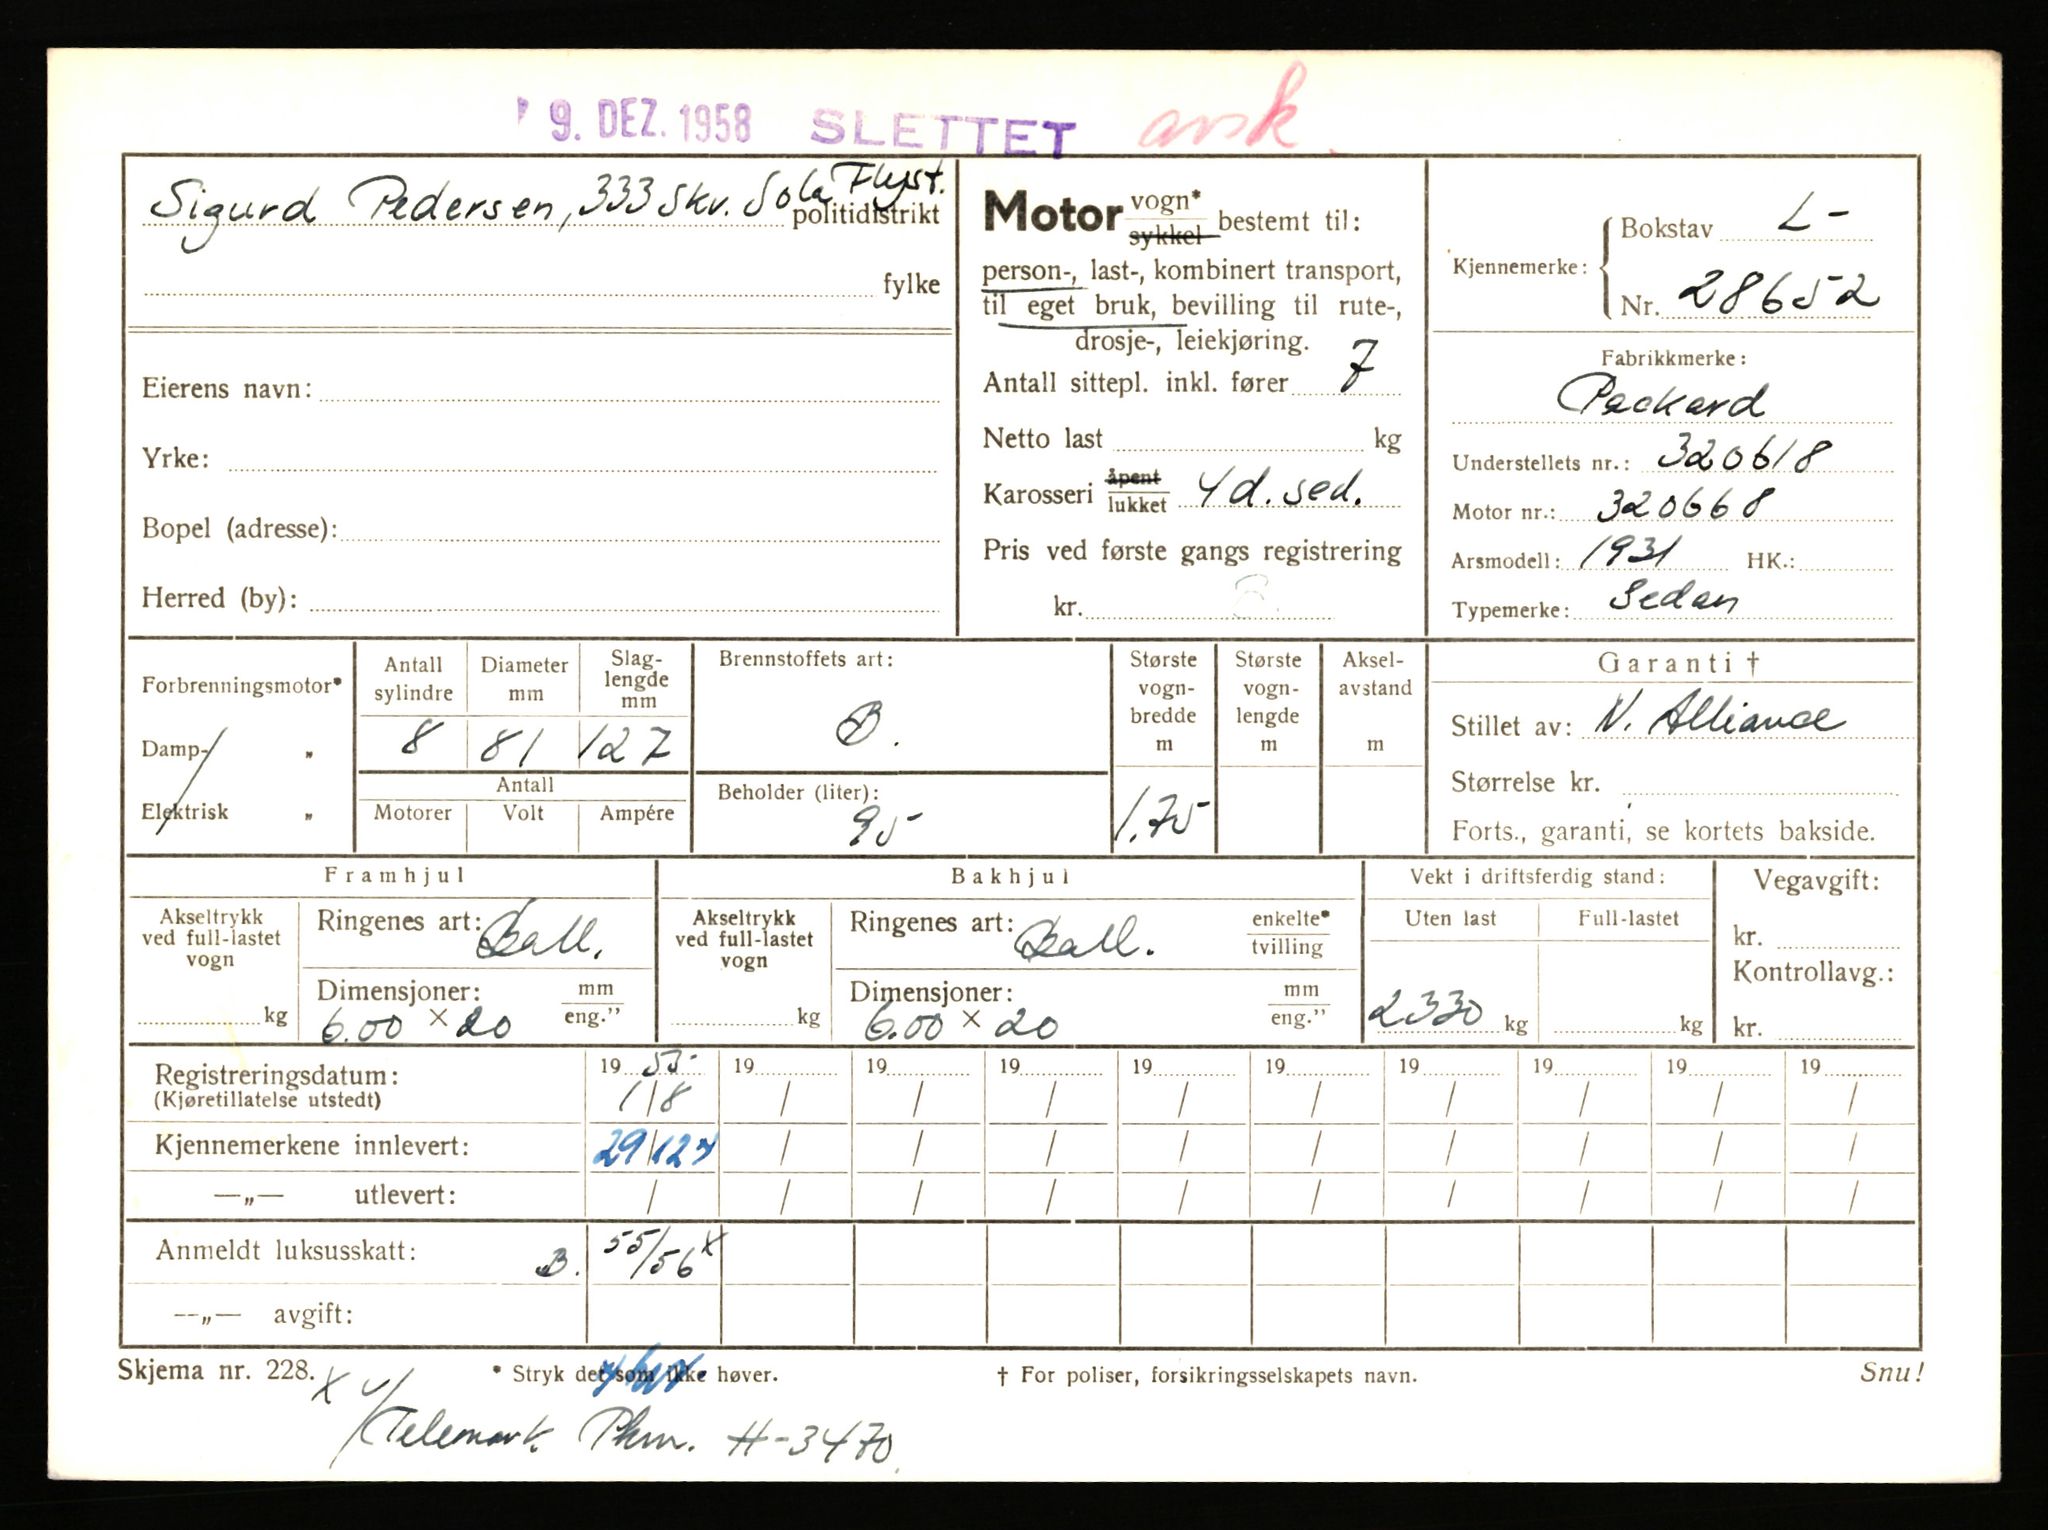 9. DEZ. 1958 SLETTET avsk.
Sigurd Pedersen, 333 skv. Sola Flyst.
politidistrikt
fylke
Eierens navn:
Yrke:
Bopel (adresse):
Herred (by):
Motor vogn* sykkel bestemt til:
person-, last-, kombinert transport,
til eget bruk, bevilling til rute-,
drosje-, leiekjøring.
Antall sittepl. inkl. fører 7
Netto last kg
Karosseri åpent lukket 4d. sed.
Pris ved første gangs registrering
kr.
Kjennemerke: Bokstav L-
Nr. 28652
Fabrikkmerke:
Packard
Understellets nr.: 320618
Motor nr.: 320668
Arsmodell: 1931 HK.:
Typemerke: Sedan
Forbrenningsmotor*
Damp- „
Elektrisk „
Antall sylindre Diameter mm Slag-lengde mm
8 81 127
Antall
Motorer Volt Ampére
Brennstoffets art:
B.
Beholder (liter):
95
Største vogn-bredde m
1.75
Største vogn-lengde m
Aksel-avstand m
Garanti †
Stillet av: N. Alliance
Størrelse kr.
Forts., garanti, se kortets bakside.
Framhjul
Akseltrykk ved full-lastet vogn
kg
Ringenes art: Ball.
Dimensjoner: mm eng.”
6.00 × 20
Bakhjul
Akseltrykk ved full-lastet vogn
kg
Ringenes art: Ball. enkelte* tvilling
Dimensjoner: mm eng.”
6.00 × 20
Vekt i driftsferdig stand:
Uten last Full-lastet
2330 kg kg
Vegavgift:
kr.
Kontrollavg.:
kr.
Registreringsdatum: 19 55 19 19 19 19 19 19 19 19 19
(Kjøretillatelse utstedt) 1/8 / / / / / / / / /
Kjennemerkene innlevert: 29/12 / / / / / / / / /
—„— utlevert: / / / / / / / / / /
Anmeldt luksusskatt: B. 55/56 x
—„— avgift:
Skjema nr. 228. * Stryk det som ikke høver. † For poliser, forsikringsselskapets navn. Snu!
x v/
Telemark Pkm. H-3470.